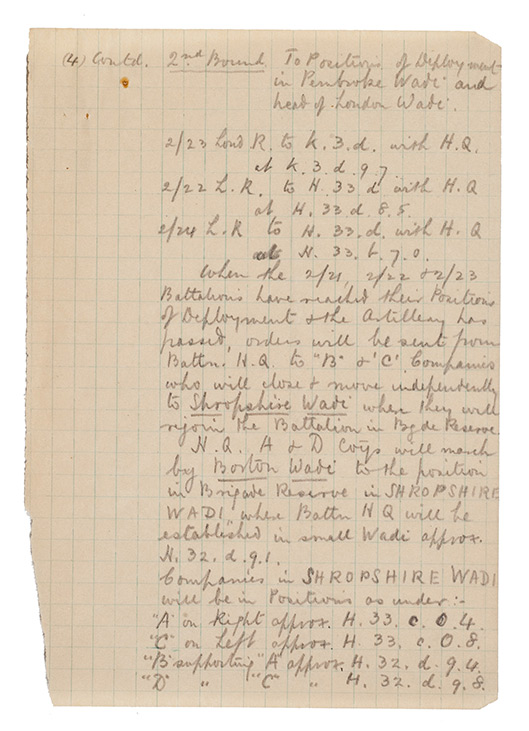 (4) Contd. 2nd Bound To Positions of Deployment
in Pembroke Wadi and
head of London Wadi.
2/23 Lond R. to K.3.d. with H.Q.
at K.3.d.9.7
2/22 L.R. to H.33.d with H.Q
at H.33.d.8.5.
2/24 L.R to H.33.d. with H.Q
at H.33.b.7.0.
When the 2/21, 2/22 & 2/23
Battalions have reached their Positions
of Deployment & the Artillery has
passed, orders will be sent from
Battn. H.Q. to "B" & 'C' Companies
who will close & move independently
to Shropshire Wadi when they will
rejoin the Battalion in Bgde Reserve.
H.Q. A & D Coys will march
by Borton Wadi to the position
in Brigade Reserve in SHROPSHIRE
WADI, where Battn HQ will be
established in small Wadi approx.
H.32.d.9.1.
Companies in SHROPSHIRE WADI
will be in Positions as under:-
"A" on Right approx. H.33.c.0.4.
"C" on Left approx. H.33.c.0.8.
"B" supporting "A" approx. H.32.d.9.4.
"D" " "C" " H.32.d.9.8.